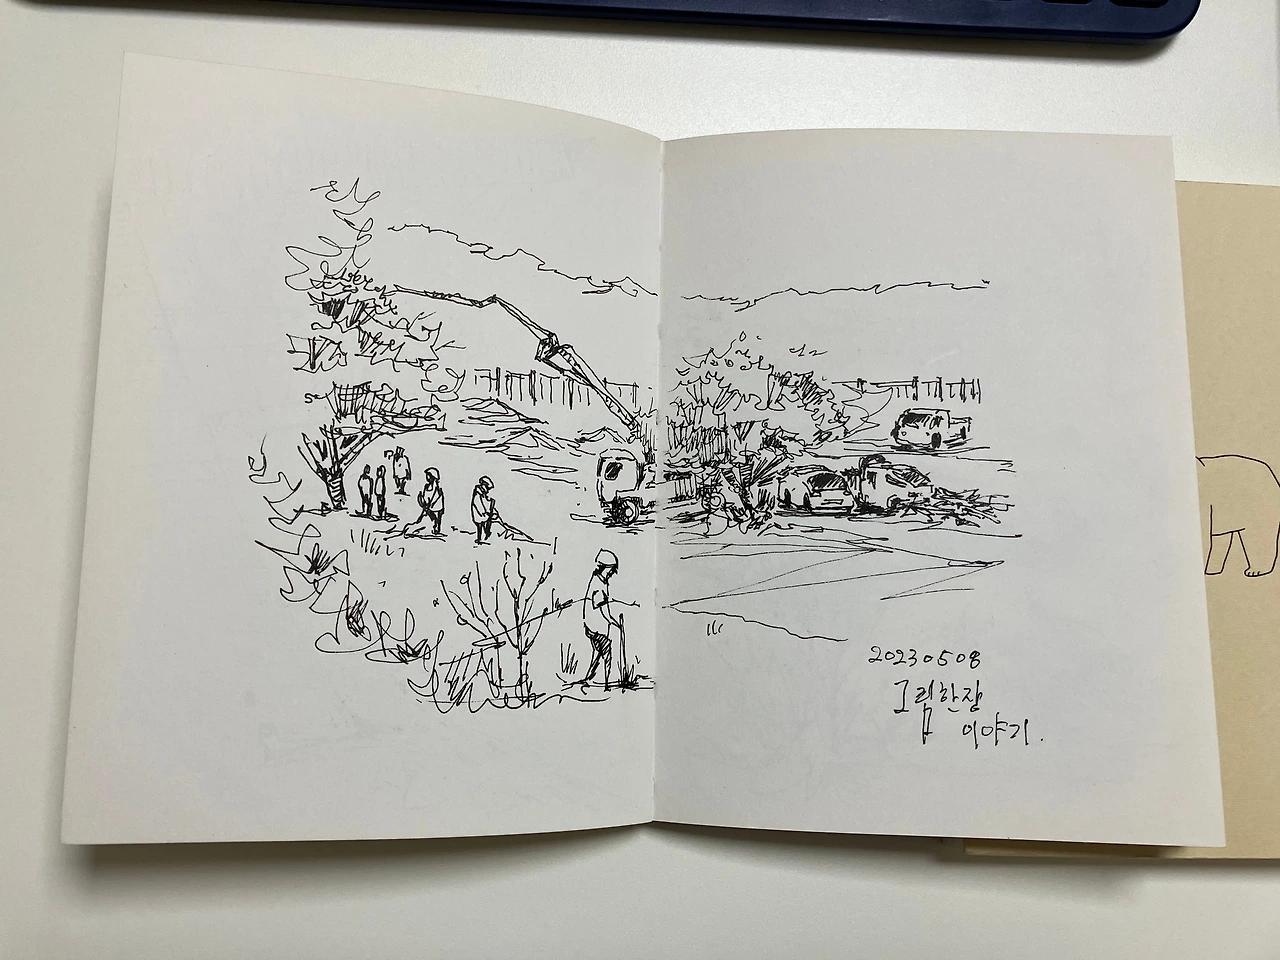 20230508
그림한장
이야기.